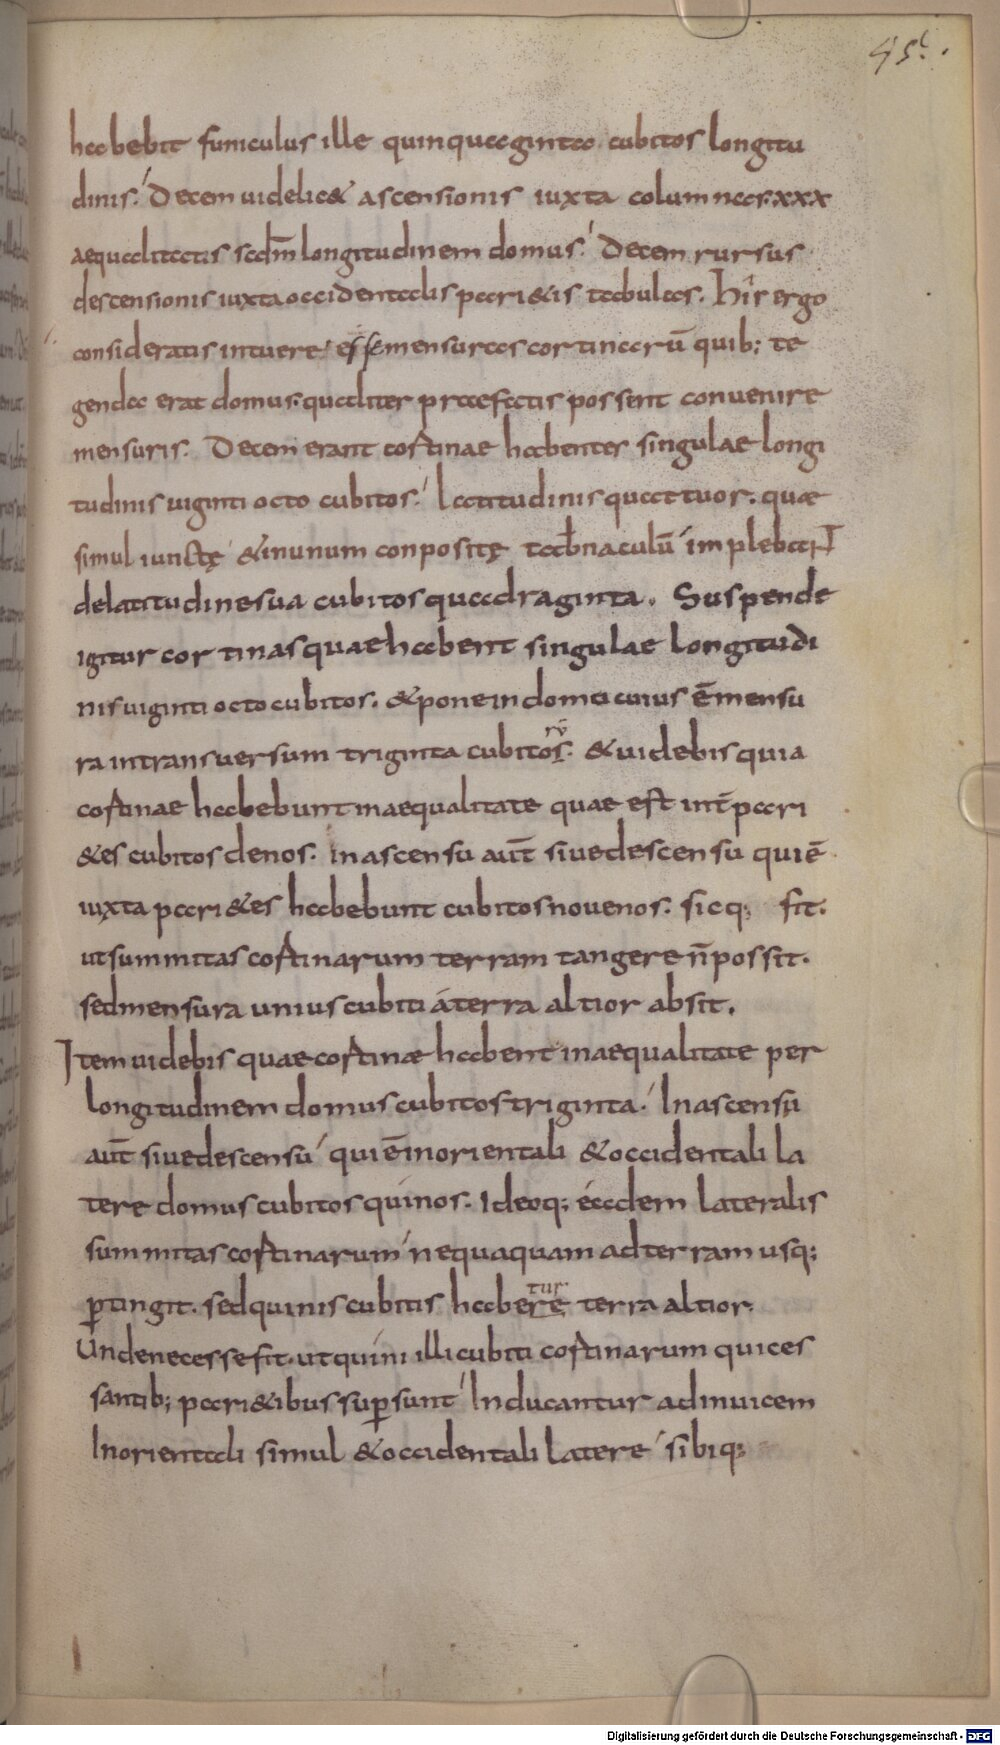 45.
habebit funiculus ille quinquaginta cubitos longitu
dinis. Decem uidelic& ascensionis iuxta columnas. xxx
aequalitatis scdm̄ longitudinem domus. Decem rursus
descensionis iuxta occidentalis pari&is tabulas. His ergo
consideratis intuere esse mensuras cortinarū quib; te
genda erat domus. qualiter praefatis possent convenire
mensuris. Decem erant cortinae habentes singulae longi
tudinis uiginti octo cubitos. latitudinis quattuor. quae
simul iunctę &inunum conpositę tab̄naculū implebaNT
delatitudinesua cubitos quadraginta. Suspende
igitur cortinas quae habent singulae longitudi
nis uiginti octo cubitos. &pone in domo cuius ē mensu
ra intransuersum triginta cubitorū. &uidebis quia
cortinae habebunt inaequalitate quae est int̄ pari
&es cubitos denos. in ascensu aut̄ siue descensu qui ē
iuxta pari&es habebunt cubitos nouenos. sicq; fit.
ut summitas cortinarum terram tangere n̄ possit.
sed mensura unius cubiti á terra altior absit.
Item uidebis quae cortinæ habent inaequalitate per
longitudinem domus cubitos triginta. In ascensu
aut̄ siue descensu qui ē in orientali &occidentali la
tere domus cubitos quinos. Ideoq; eadem lateralis
summitas cortinarum nequaquam ad terram usq;
p̄tingit. sed quinis cubitis habetur terra altior.
Unde necesse fit. ut quini illi cubiti cortinarum qui ces
santib; pari&ibus sup̄sunt Inducantur adinuicem
In orientali simul &occidentali latere sibiq;
Digitalisierung gefördert durch die Deutsche Forschungsgemeinschaft - DFG